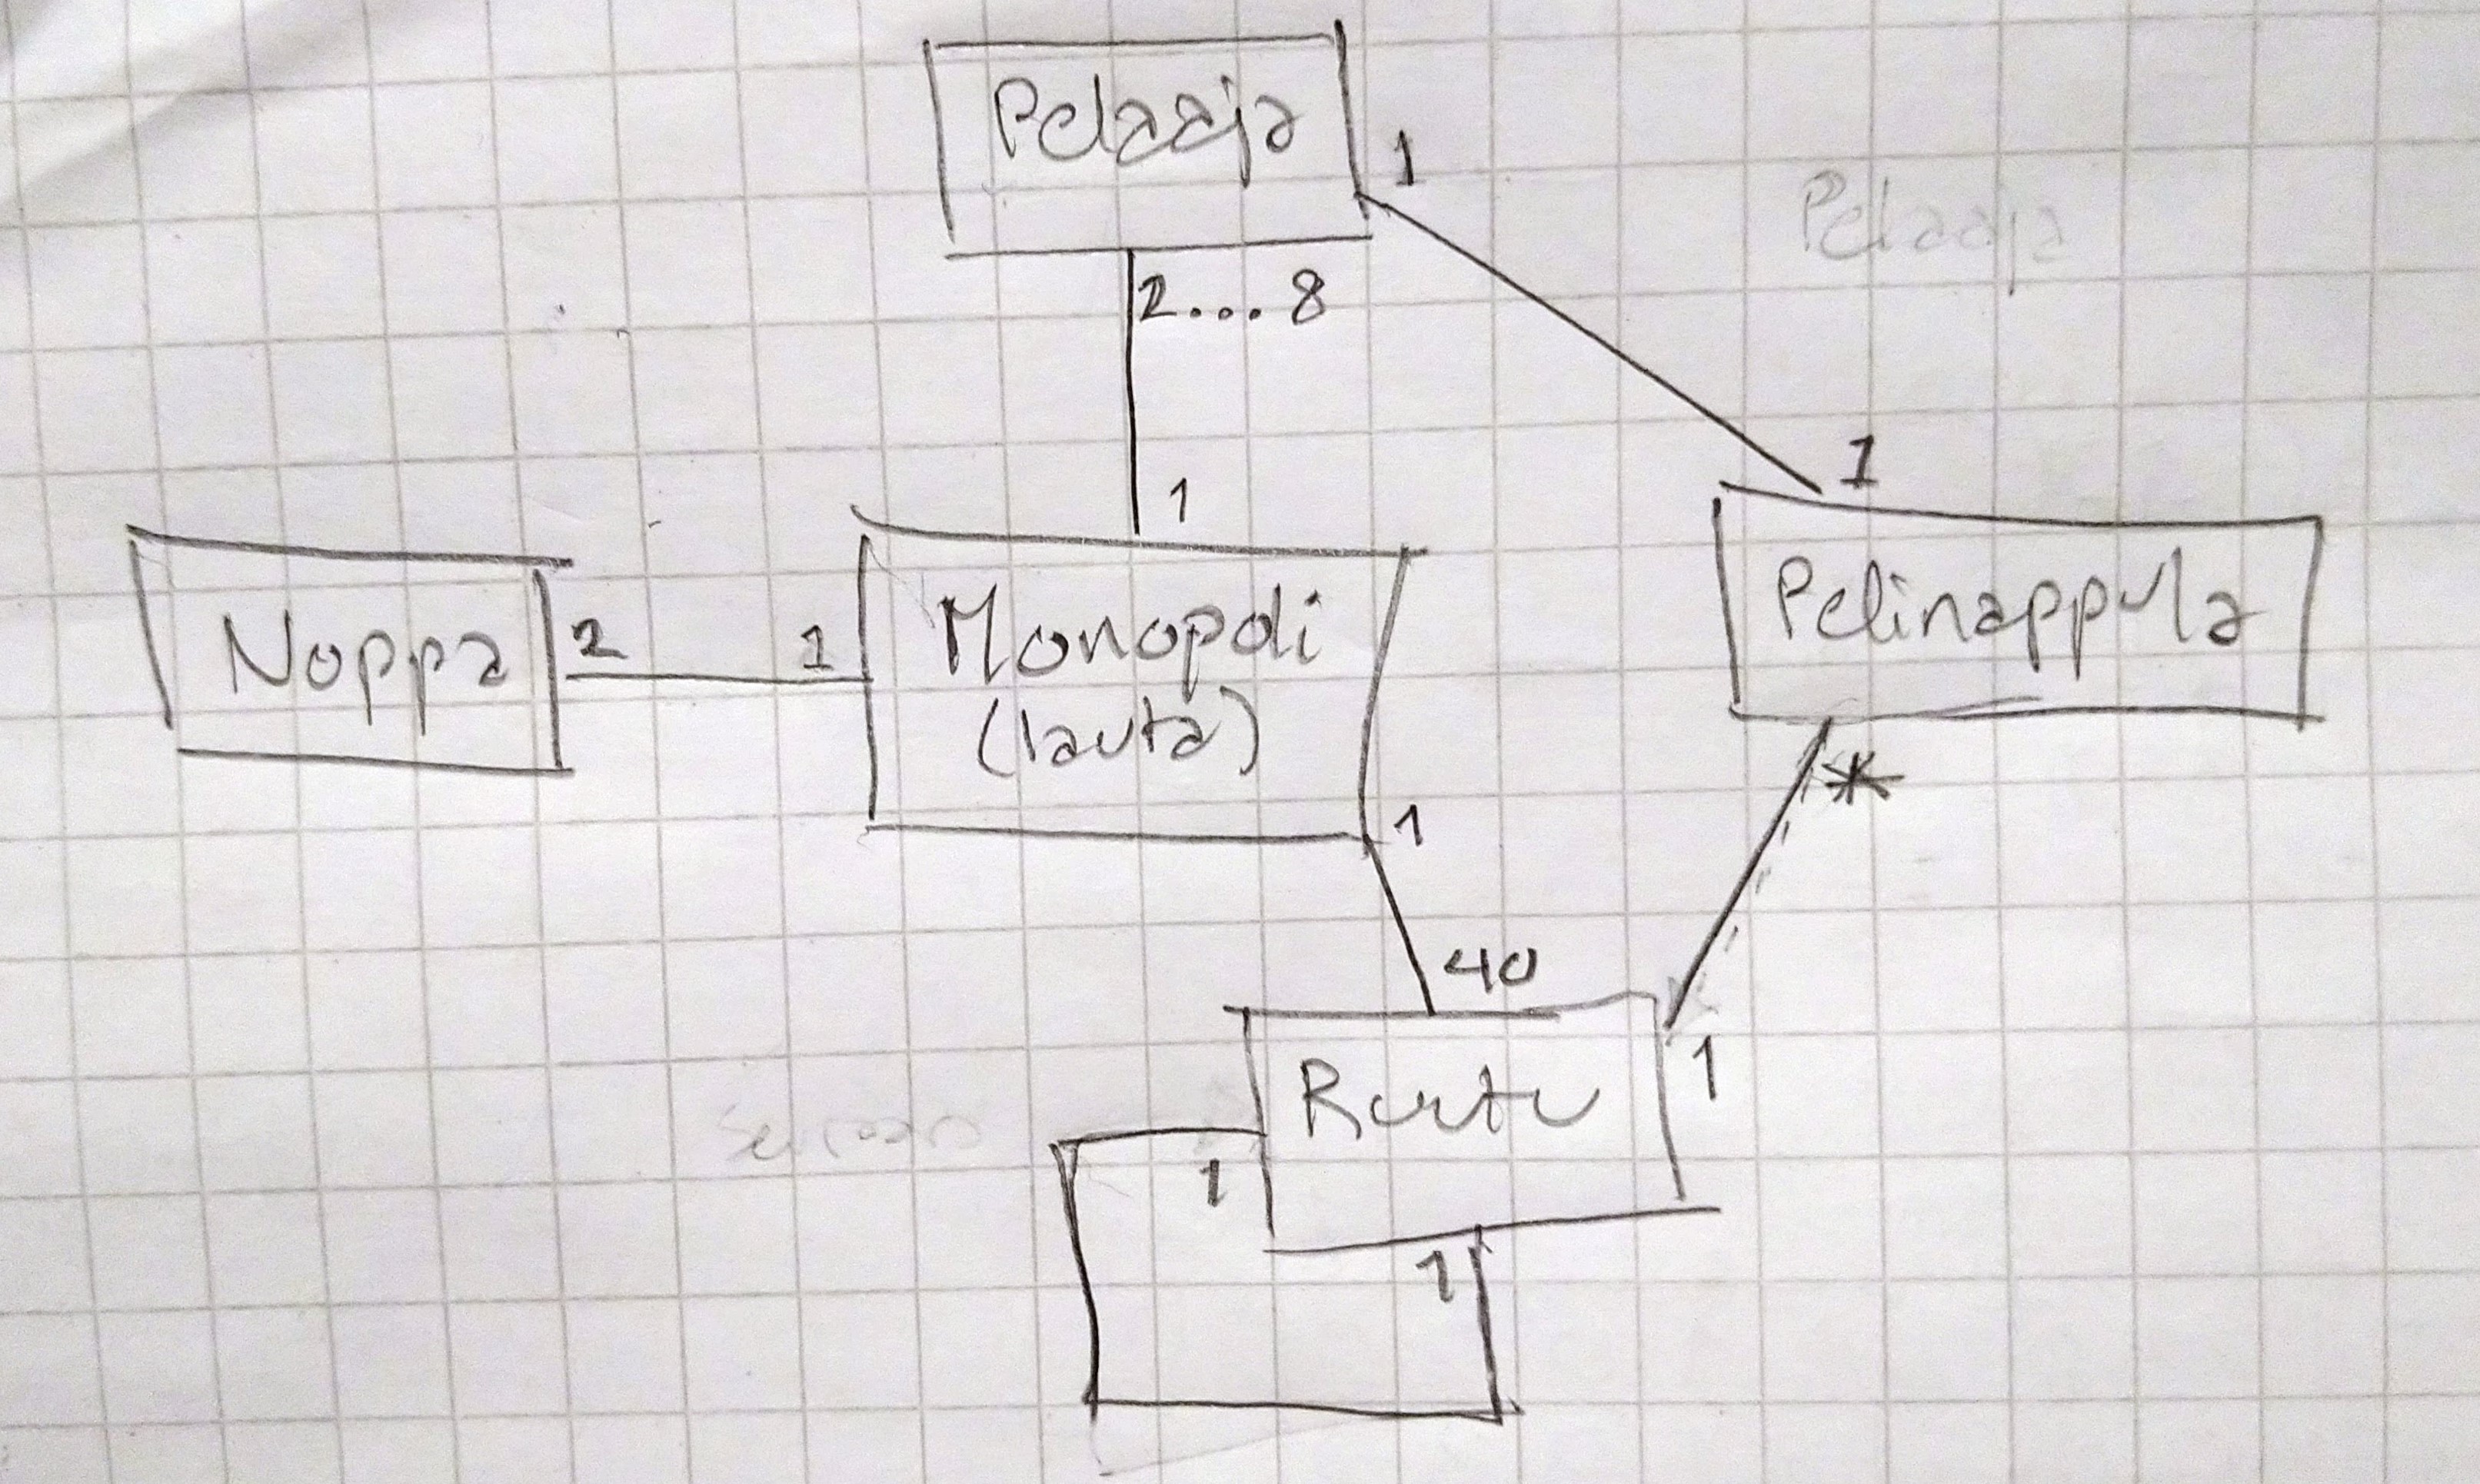 Pelaaja
1
Pelaaja
2...8
1
1
Noppa
2
1
Monopoli
(lauta)
Pelinappula
1
*
40
Ruutu
1
1
1